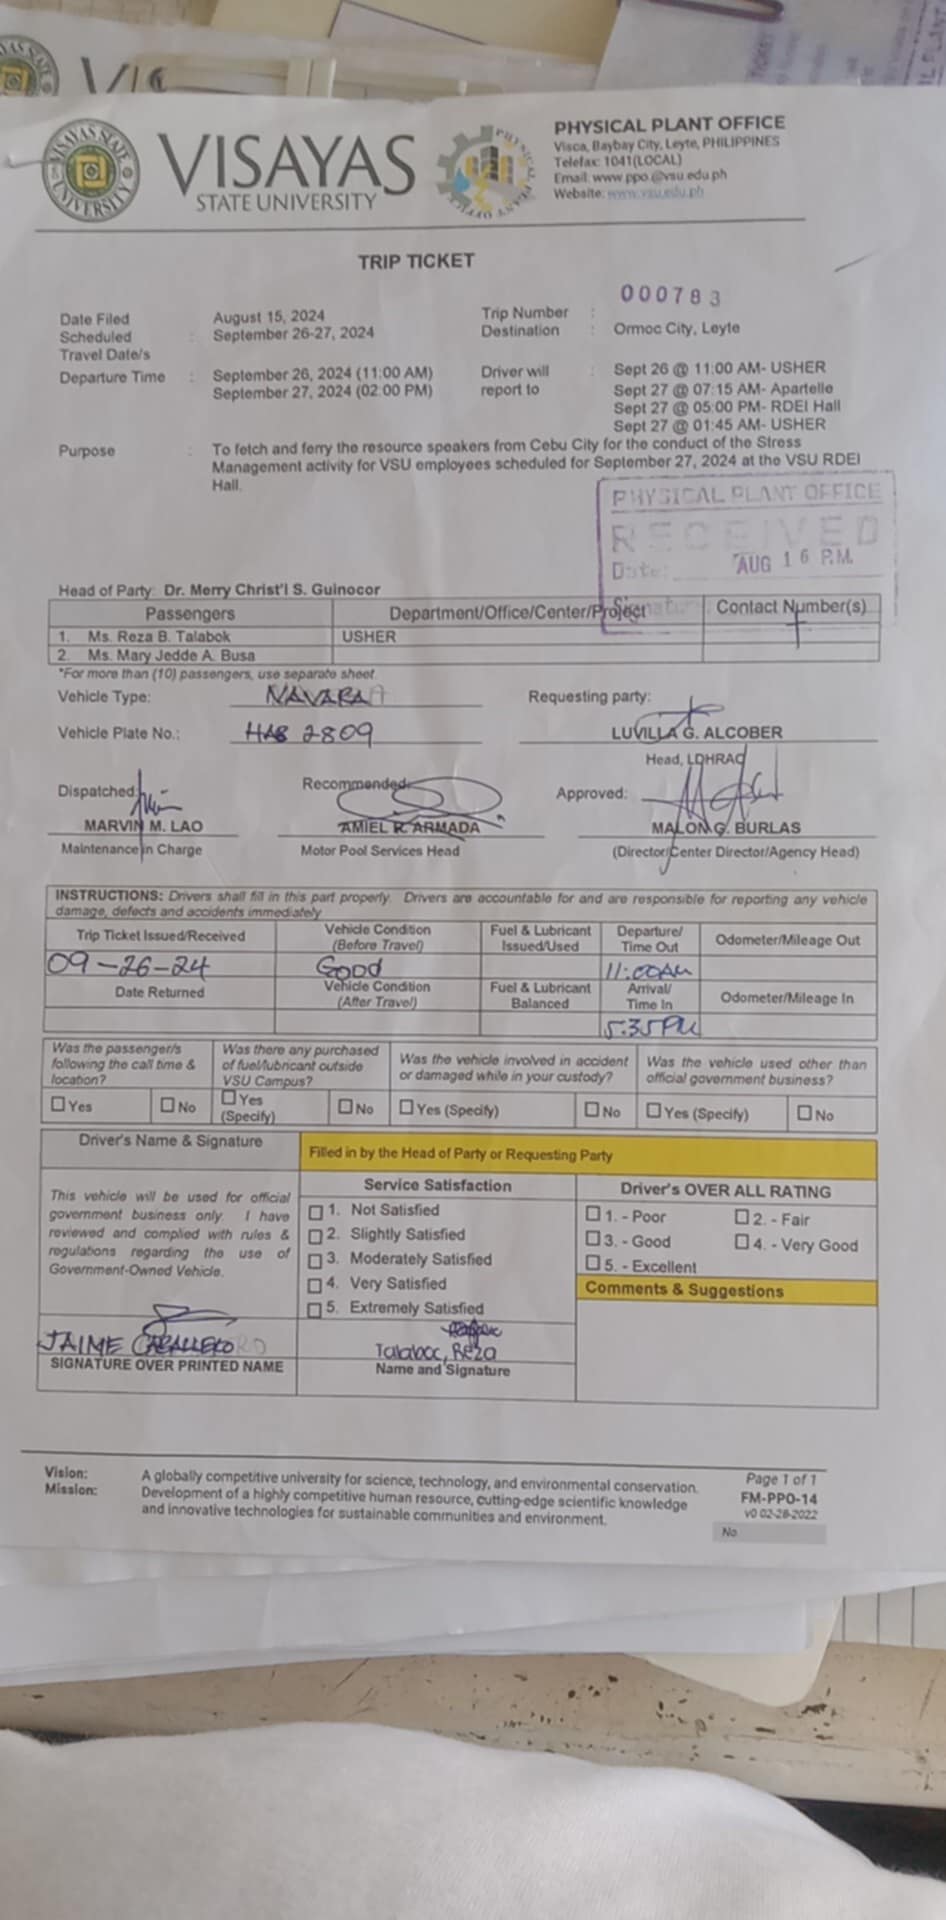 VIS
VISAYAS
STATE UNIVERSITY
PHYSICAL PLANT OFFICE
Visca, Baybay City, Leyte, PHILIPPINES
Telefax: 1041(LOCAL)
Email: www.ppo.@vsu.edu.ph
Website: www.vsu.edu.ph
TRIP TICKET
000783
Date Filed August 15, 2024 Trip Number :
Scheduled Travel Date/s : September 26-27, 2024 Destination : Ormoc City, Leyte
Departure Time : September 26, 2024 (11:00 AM) Driver will report to : Sept 26 @ 11:00 AM- USHER
September 27, 2024 (02:00 PM) Sept 27 @ 07:15 AM- Apartelle
Sept 27 @ 05:00 PM- RDEI Hall
Sept 27 @ 01:45 AM- USHER
Purpose : To fetch and ferry the resource speakers from Cebu City for the conduct of the Stress
Management activity for VSU employees scheduled for September 27, 2024 at the VSU RDEI
Hall.
PHYSICAL PLANT OFFICE
RECEIVED
Date: AUG 16 P.M.
Head of Party: Dr. Merry Christ'l S. Guinocor
Passengers Department/Office/Center/Project Contact Number(s)
1. Ms. Reza B. Talabok USHER
2. Ms. Mary Jedde A. Busa
*For more than (10) passengers, use separate sheet.
Vehicle Type: NAVARA Requesting party:
Vehicle Plate No.: HAB 2809 LUVILLA G. ALCOBER
Head, LDHRAC
Dispatched: Recommended: Approved:
MARVIN M. LAO AMIEL R. ARMADA MALON G. BURLAS
Maintenance in Charge Motor Pool Services Head (Director/Center Director/Agency Head)
INSTRUCTIONS: Drivers shall fill in this part properly. Drivers are accountable for and are responsible for reporting any vehicle
damage, defects and accidents immediately
Trip Ticket Issued/Received Vehicle Condition (Before Travel) Fuel & Lubricant Issued/Used Departure/ Time Out Odometer/Mileage Out
09-26-24 Good 11:00AM
Date Returned Vehicle Condition (After Travel) Fuel & Lubricant Balanced Arrival/ Time In Odometer/Mileage In
5:35PM
Was the passenger/s following the call time & location? Was there any purchased of fuel/lubricant outside VSU Campus? Was the vehicle involved in accident or damaged while in your custody? Was the vehicle used other than official government business?
Yes No Yes (Specify) No Yes (Specify) No Yes (Specify) No
Driver's Name & Signature Filled in by the Head of Party or Requesting Party
Service Satisfaction Driver's OVER ALL RATING
This vehicle will be used for official
government business only. I have
reviewed and complied with rules &
regulations regarding the use of
Government-Owned Vehicle.
1. Not Satisfied
2. Slightly Satisfied
3. Moderately Satisfied
4. Very Satisfied
5. Extremely Satisfied
1. - Poor 2. - Fair
3. - Good 4. - Very Good
5. - Excellent
Comments & Suggestions
JAIME CABALLERO Talaboc, Reza
SIGNATURE OVER PRINTED NAME Name and Signature
Vision: A globally competitive university for science, technology, and environmental conservation.
Mission: Development of a highly competitive human resource, cutting-edge scientific knowledge
and innovative technologies for sustainable communities and environment.
Page 1 of 1
FM-PPO-14
v0 02-28-2022
No